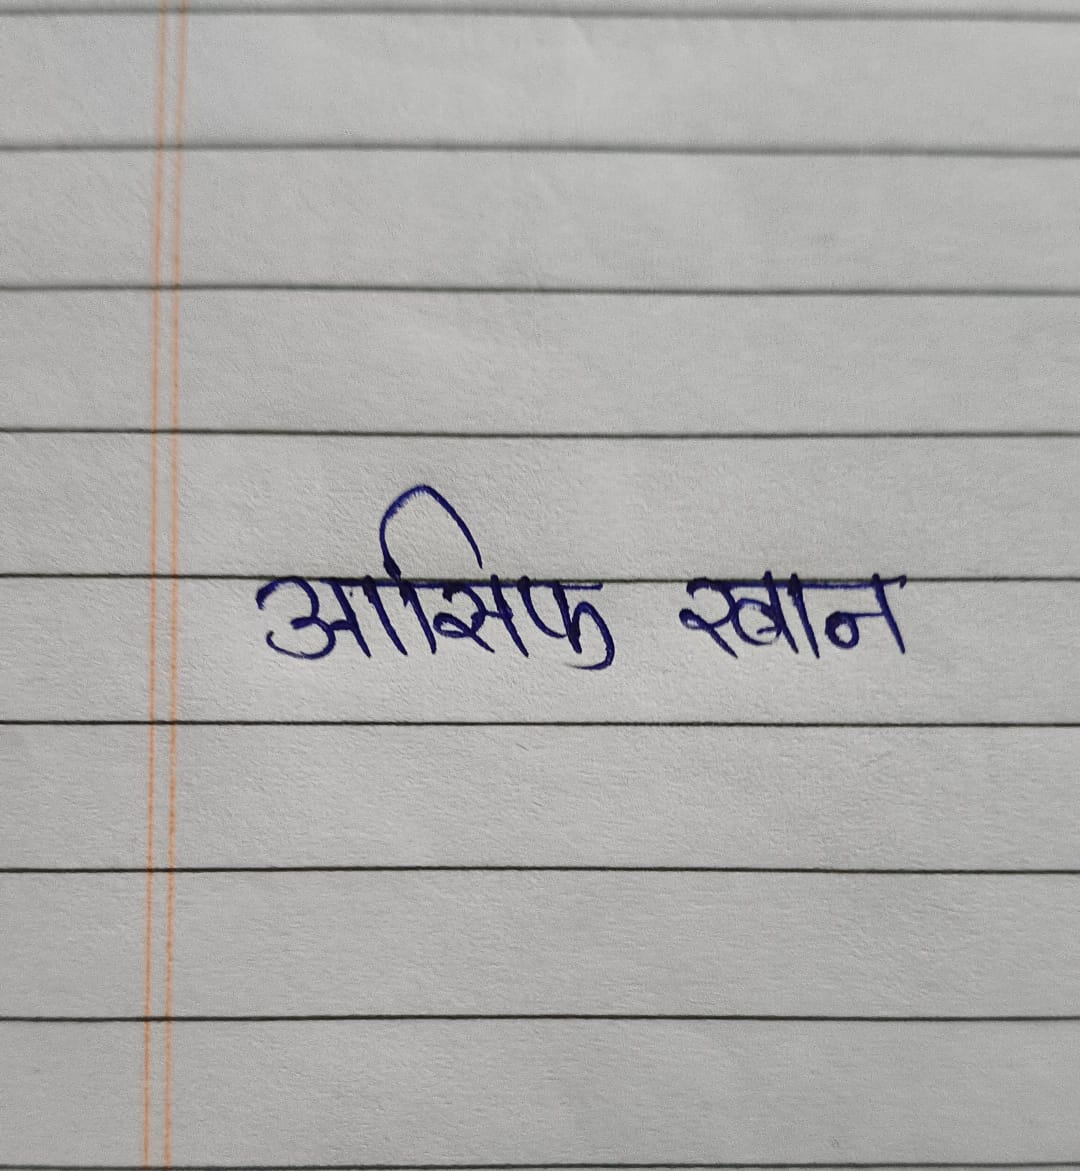 आसिफ खान